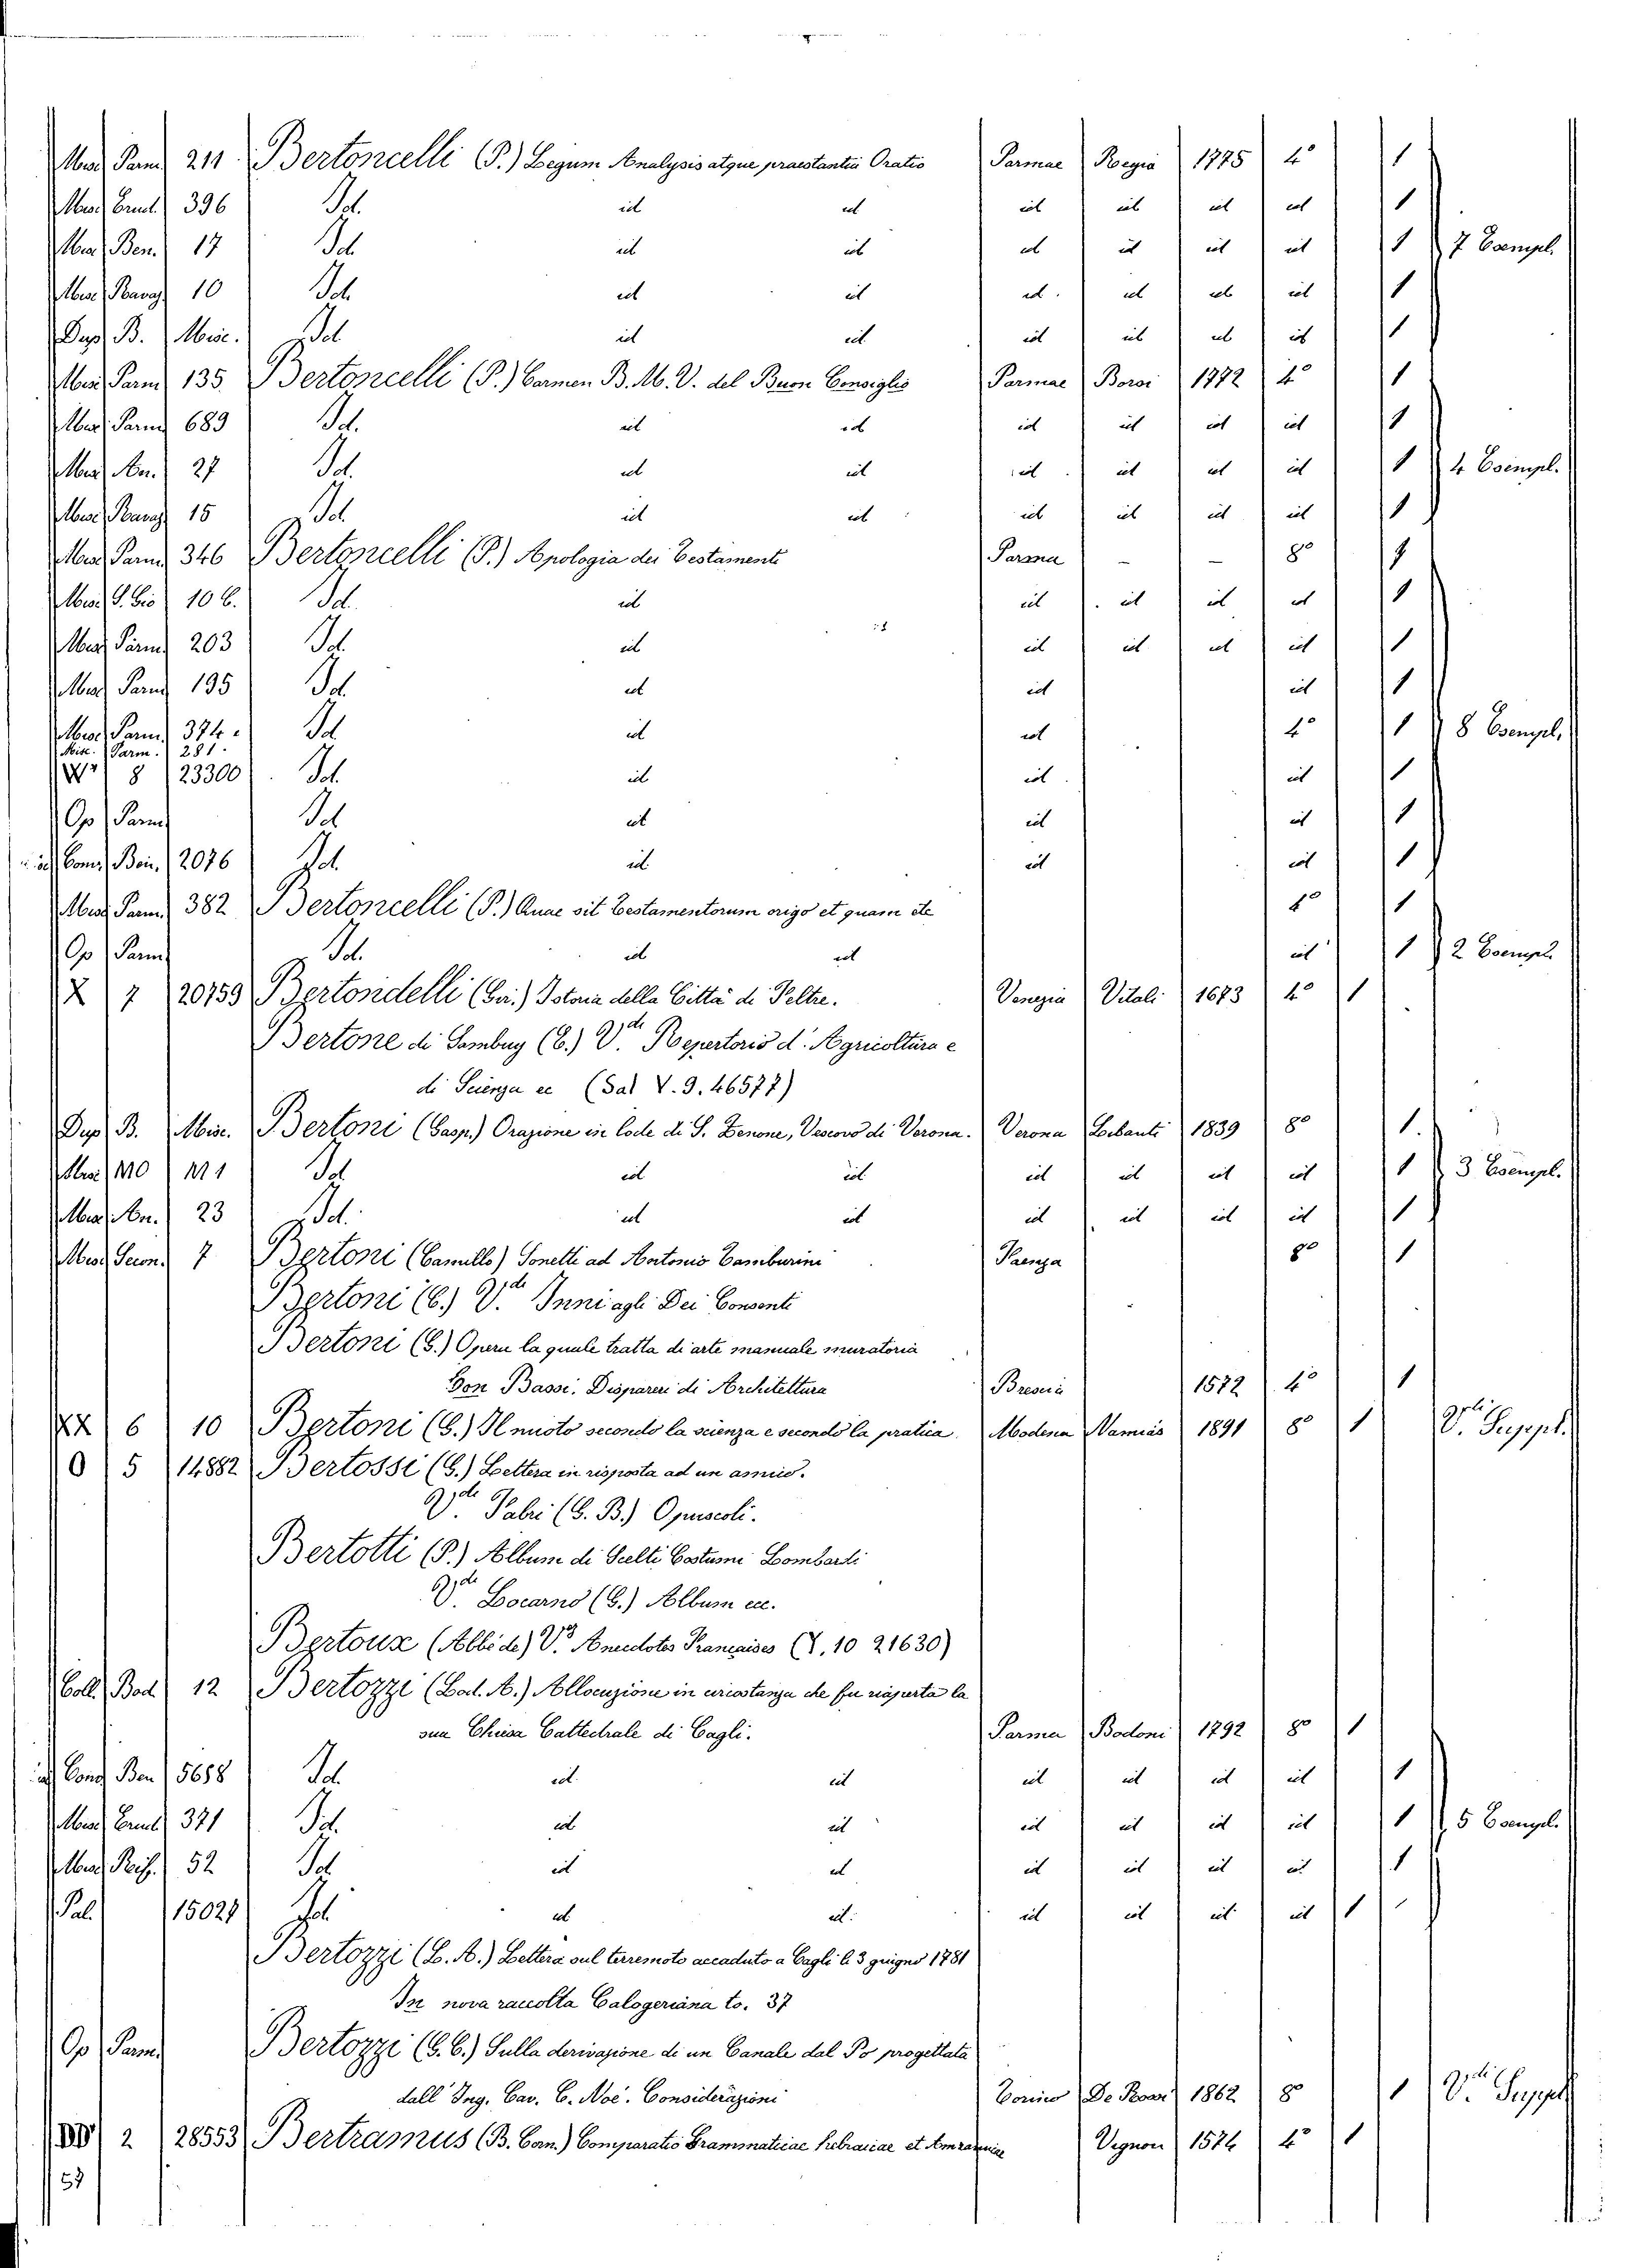 Misc. Parm. 211 Bertoncelli (P.) Legum Analysis atque praestantiā Oratio Parmae Regia 1775 4° 1
Misc. Erud. 396 Id. id id id id id id 1
Misc. Ben. 17 Id. id id id id id id 1 7 Esempl.
Misc. Ravag. 10 Id. id id id id id id 1
Dup. B. Misc. Id id id id id id id 1
Misc. Parm. 135 Bertoncelli (P.) Carmen B. M. V. del Buon Consiglio Parmae Borsi 1772 4° 1
Misc. Parm. 689 Id. id id id id id id 1
Misc. An. 27 Id. id id id id id id 1 4 Esempl.
Misc. Ravag. 15 Id. id id id id id id 1
Misc. Parm. 346 Bertoncelli (P.) Apologia dei Testamenti Parma – – 8° 1
Misc. 10 b. Id. id id id id id 1
Misc. Parm. 203 Id. id id id id id 1
Misc. Parm. 195 Id. id id id 1
Misc. Parm. 374. Id id id 4° 1 8 Esempl.
Misc. Parm. 281.
8 23300 Id. id id id 1
Op. Parm. Id id id id 1
Ben. 2076 Id. id id id 1
Misc. Parm. 382 Bertoncelli (P.) Quae sit Testamentorum origo et quam etc 4° 1
Op. Parm. Id. id id id 1 2 Esempl.
X 7 20759 Bertondelli (Gir.) Istoria della Città di Feltre. Venezia Vitali 1673 4° 1
Bertone di Sambuy (E.) V.di Repertorio d'Agricoltura e
di Scienza ec (Sal V. 9. 46577)
Dup. B. Misc. Bertoni (Gasp.) Orazione in lode di S. Zenone, Vescovo di Verona. Verona Libanti 1839 8° 1.
Misc. MO 111 Id. id id id id id id 1 3 Esempl.
Misc. An. 23 Id. id id id id id id 1
Misc. 7 Bertoni (Camillo) Sonetti ad Antonio Tamburini Faenza 8° 1
Bertoni (C.) V.di Inni agli Dei Consenti
Bertoni (G.) Opera la quale tratta di arte manuale muratoria
Con Bassi. Dispareri di Architettura Brescia 1572 4° 1
XX 6 10 Bertoni (G.) Il nuoto secondo la scienza e secondo la pratica. Modena Namias 1891 8° 1 V. Suppl.
O 5 14882 Bertossi (G.) Lettera in risposta ad un amico.
V.di Fabri (G. B.) Opuscoli.
Bertotti (P.) Album di Scelti Costumi Lombardi
V.di Locarno (G.) Album ecc.
Bertoux (Abbé de) V.di Anecdotes Françaises (Y. 10 21630)
Coll. Bod. 12 Bertozzi (Lod. A.) Allocuzione in circostanza che fu riaperta la
sua Chiesa Cattedrale di Cagli. Parma Bodoni 1792 8° 1
Ben. 5688 Id. id. id id id id id 1
Misc. Erud. 371 Id. id id id id id id 1 5 Esempl.
Misc. 52 Id. id id id id id id 1
Pal. 15027 Id. id id. id id id id 1
Bertozzi (L. A.) Lettera sul terremoto accaduto a Cagli li 3 guigno 1781
In nova raccolta Calogeriana to. 37
Op. Parm. Bertozzi (G. C.) Sulla derivazione di un Canale dal Po progettata
dall'Ing. Cav. C. Noè. Considerazioni Torino De Rossi 1862 8° 1 V. Suppl.
DD 2 28553 Bertramus (B. Corn.) Comparatio Grammaticae hebraicae et Amramicae Vignon 1574 4° 1
57